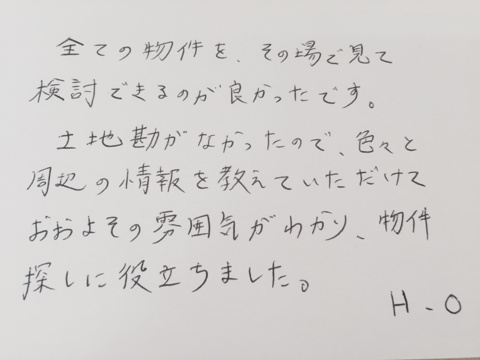 全ての物件を、その場で見て
検討できるのが良かったです。
土地勘がなかったので、色々と
周辺の情報を教えていただけて
おおよその雰囲気がわかり、物件
探しに役立ちました。
H-O